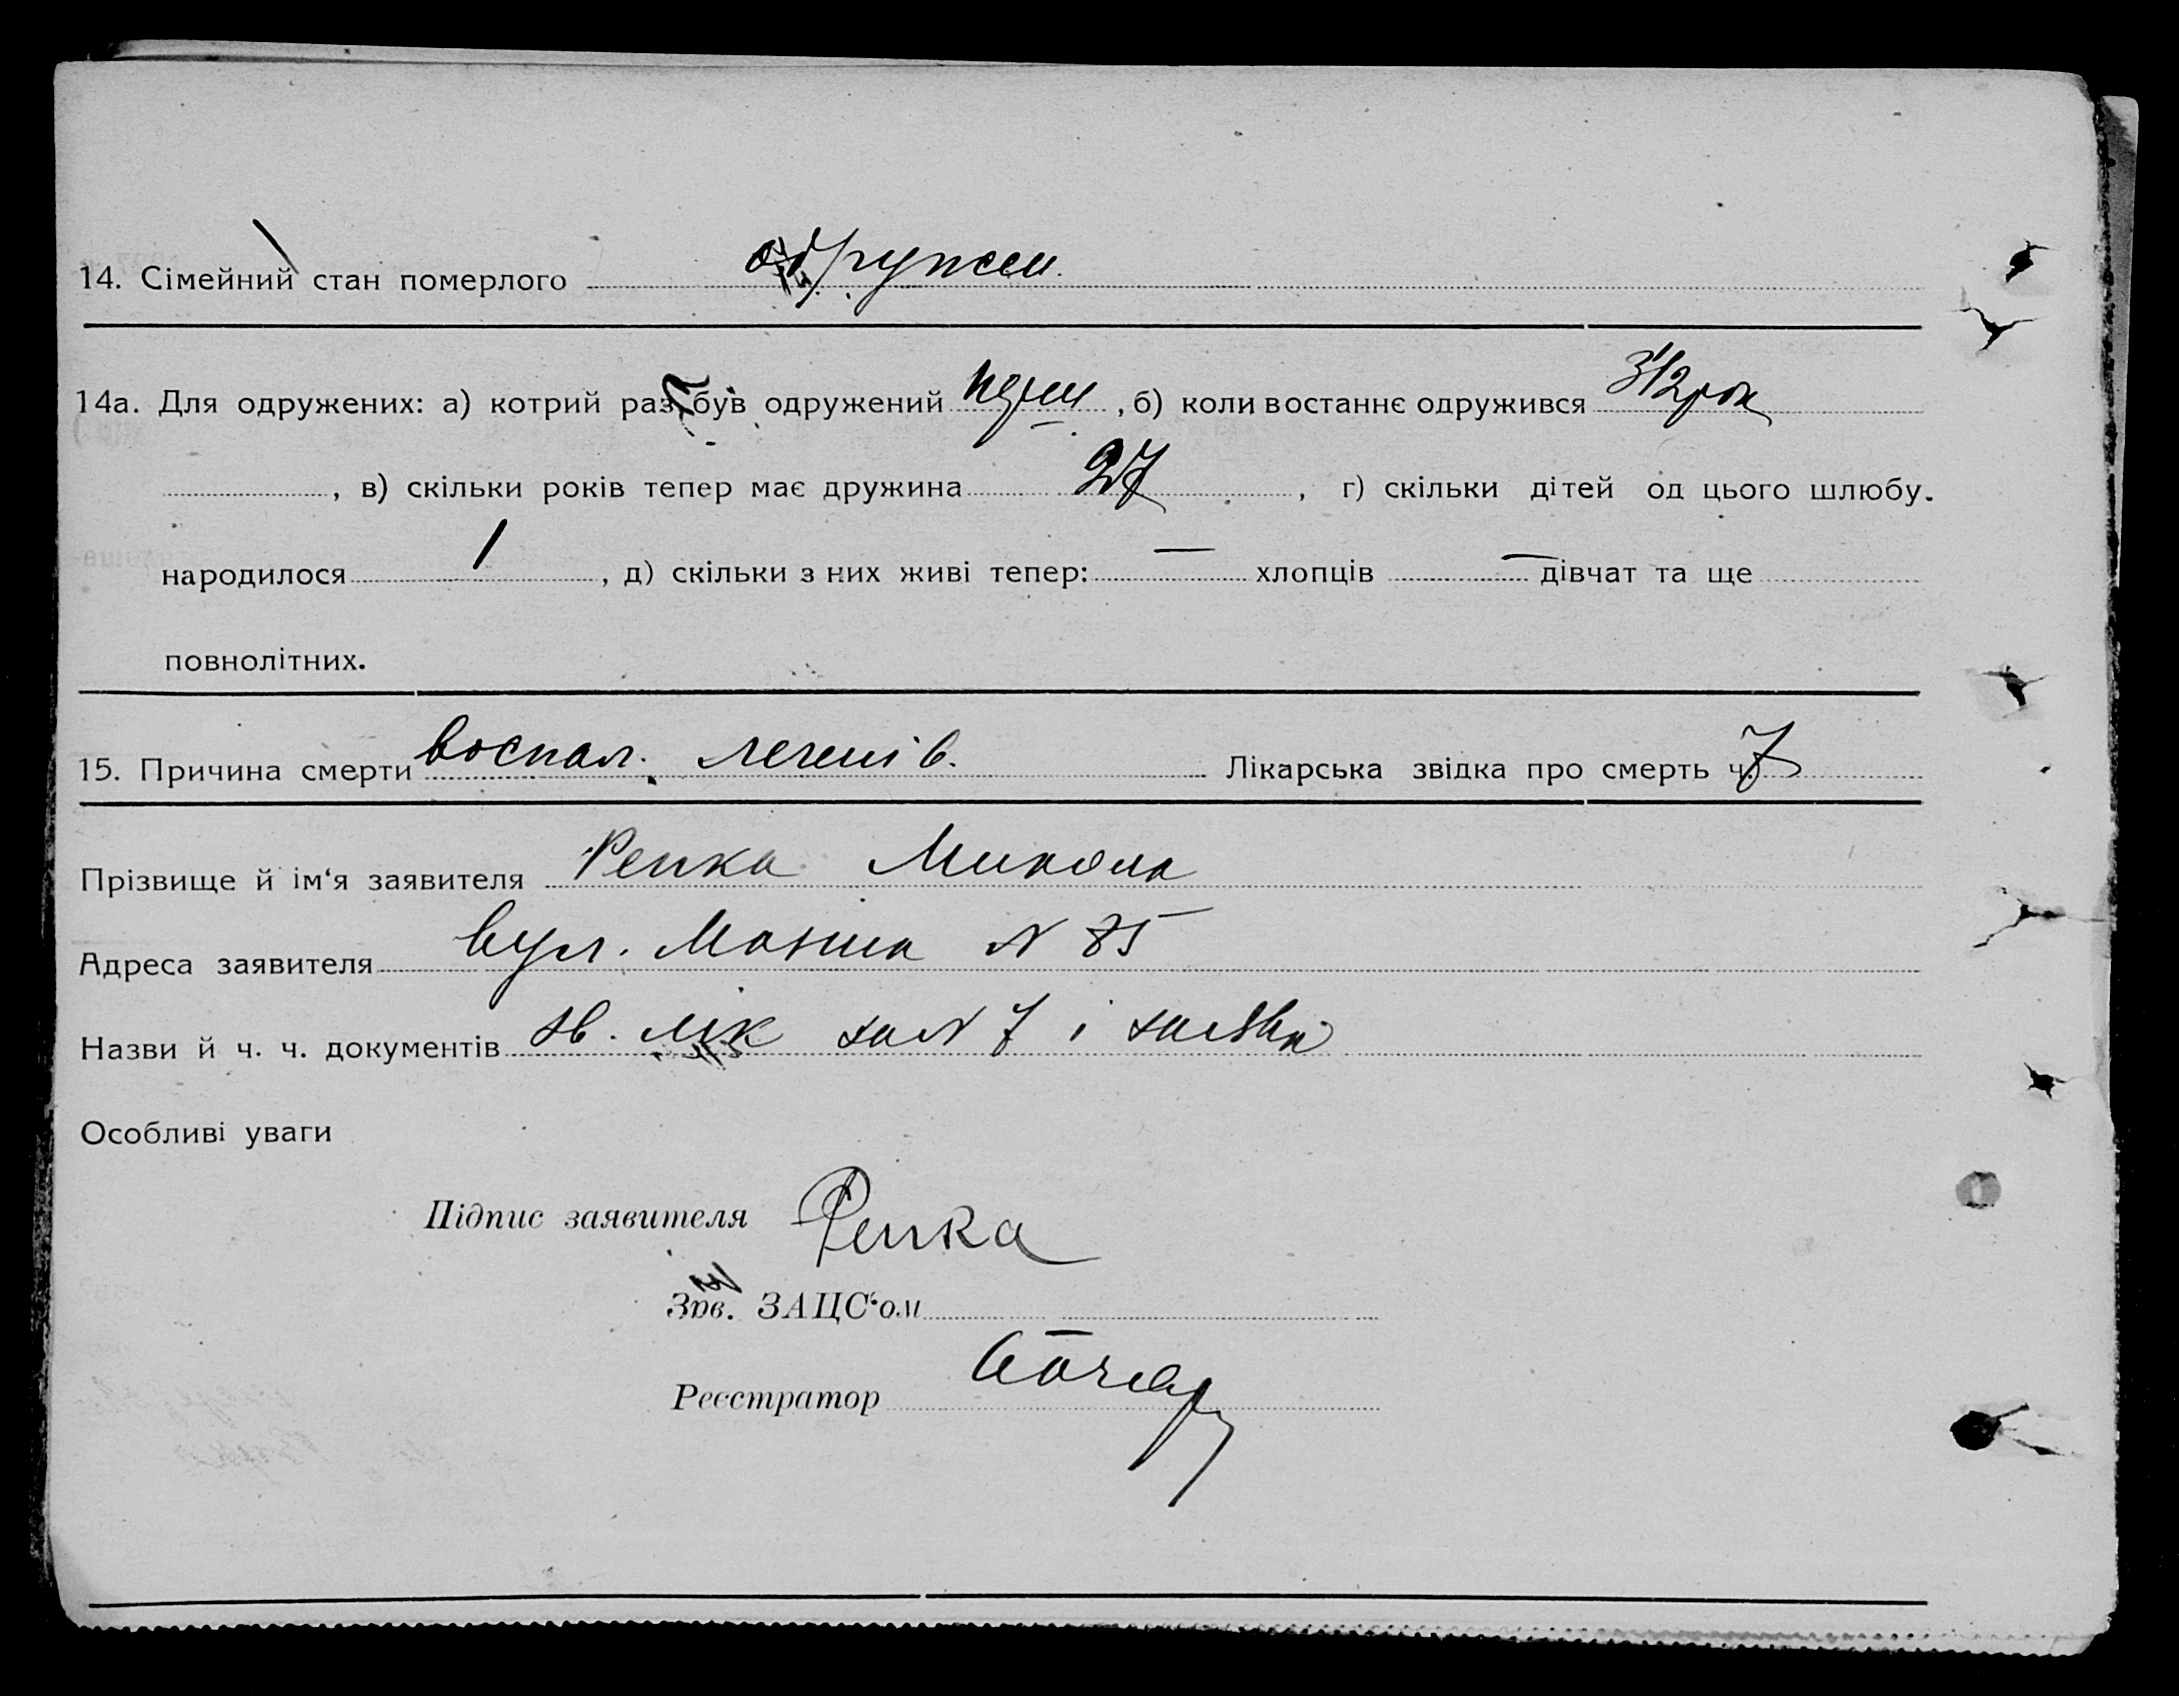 14. Сімейний стан померлого одружен.
14а. Для одружених: а) котрий раз був одружений перш, б) коли востаннє одружився 3 1/2 рок
, в) скільки років тепер має дружина 27, г) скільки дітей од цього шлюбу.
народилося 1, д) скільки з них живі тепер: — хлопців — дівчат та ще
повнолітних.
15. Причина смерти воспал. легенів. Лікарська звідка про смерть ч. 7
Прізвище й ім‘я заявителя Репка Микола
Адреса заявителя вул. N 85
Назви й ч. ч. документів зв. лік за N 7 і заява
Особливі уваги
Підпис заявителя Репка
Зав. ЗАЦС‘ом
Реєстратор